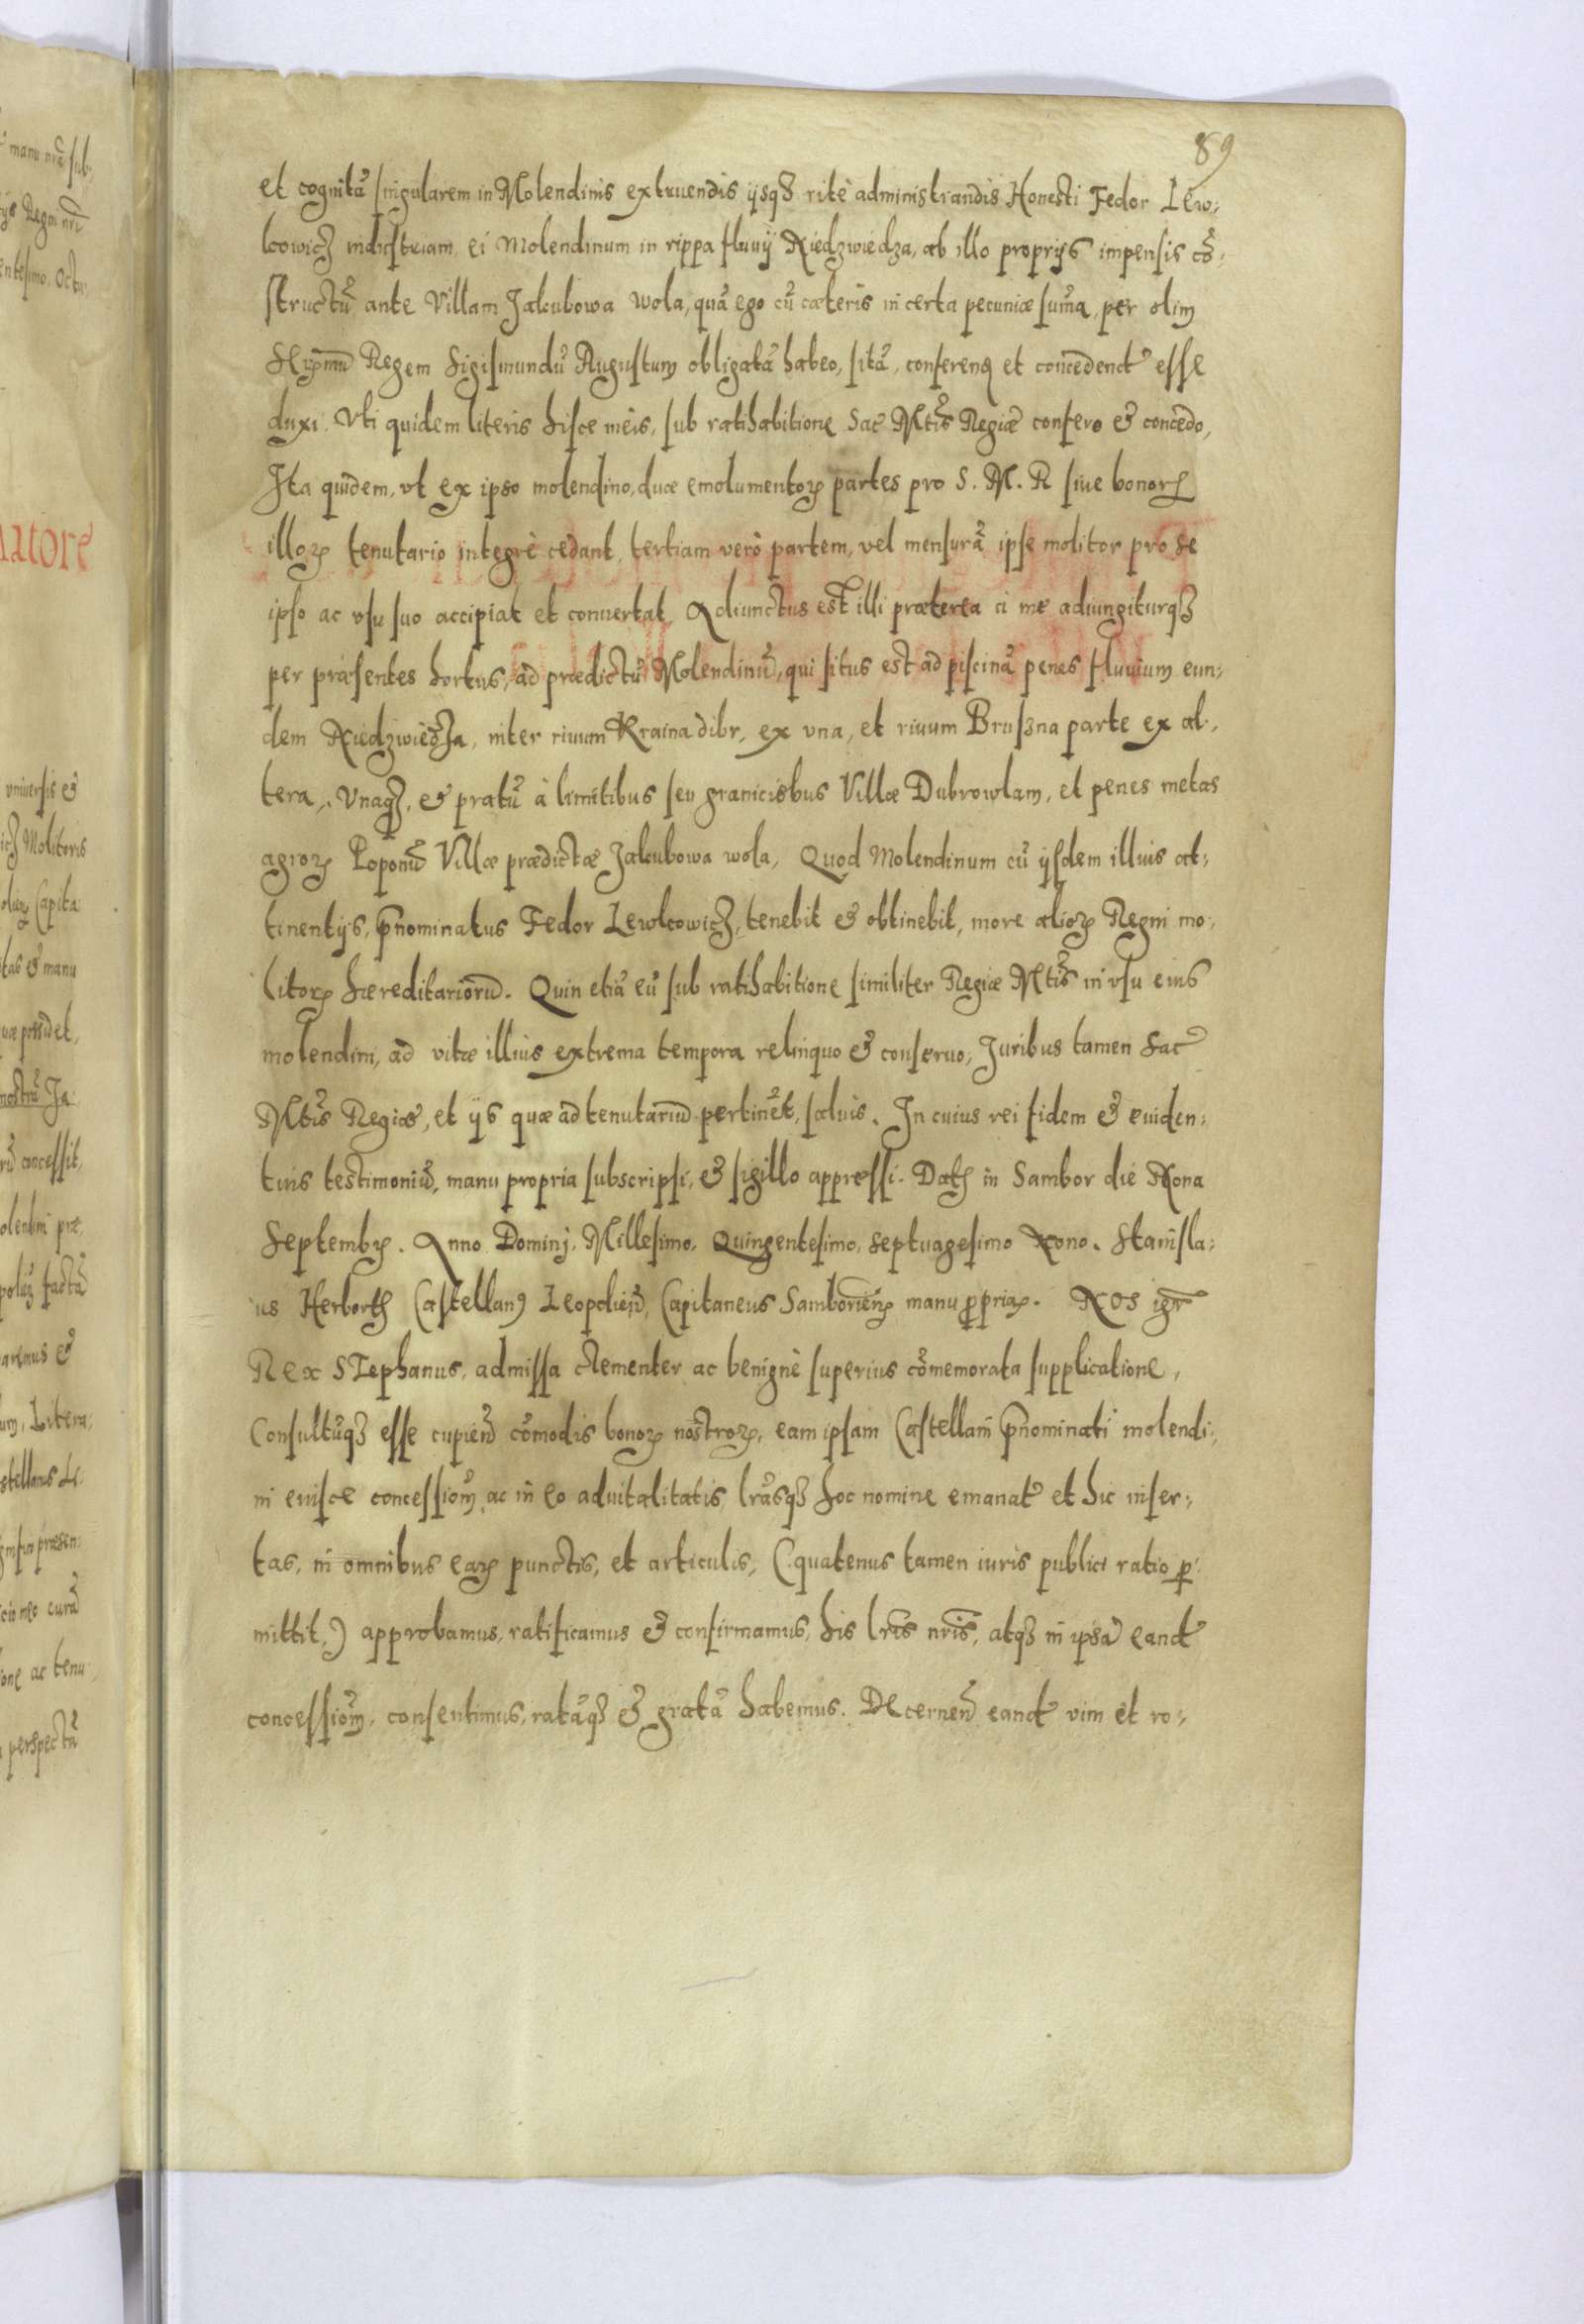 89
et cognitā singularem in Molendinis extruendis ijsqȝ ritè administrandis Honesti Fedor Lew:
kowicz industriam, ei Molendinum in rippa fluuij Niedzwiedza, ab illo proprijs impensis cō:
structū ante Villam Jakubowa wola, quā ego cū cæteris in certa pecuniæ sum̄a, per olim
Regem Sigismundū Augustum obligatā habeo, sitā, conferend et concedend esse
duxi. Vti quidem literis hisce meis, sub ratihabitione Sac Mtis Regiæ confero & concedo,
Ita quidem, vt ex ipso molendino, duæ emolumentoꝝ partes pro S. M. R siue bonorꝝ
illoꝝ tenutario integrè cedant, tertiam verò partem, vel mensurā ipse molitor pro se
ipso ac vsu suo accipiat et conuertat, Adiunctus est illi præterea a me adiungiturqȝ
per præsentes hortus, ad prædictū Molendinū, qui situs est ad piscinā penes fluuium eun:
dem Niedzwiedza, inter riuum Kraina dibr, ex vna, et riuum Bruszna parte ex al:
tera, Vnaqȝ, & pratū à limitibus seu granicisbus Villæ Dubrowlam, et penes metas
agroꝝ Poponū Villæ prædictæ Jakubowa wola, Quod Molendinum cū ijsdem illius at:
tinentijs, p̄nominatus Fedor Lewkowicz, tenebit & obtinebit, more alioꝝ Regni mo:
litoꝝ hæreditariorū. Quin etiā eū sub ratihabitione similiter Regiæ Mtis in vsu eius
molendini, ad vitæ illius extrema tempora relinquo & conseruo, Juribus tamen Sac
Mtis Regiæ, et ijs quæ ad tenutariū pertinēt, saluis. In cuius rei fidem & euiden:
tius testimoniū, manu propria subscripsi, & sigillo appressi. Datꝝ in Sambor die Nona
Septembꝝ. Anno Dominj, Millesimo, Quingentesimo, septuagesimo Nono. Stanisla:
us Herborth Castellanꝰ Leopolien̄, Capitaneus Samborien̄ꝝ manu ꝓpriaꝝ. Nos igr̄
Rex STephanus, admissa clementer ac benignè superius cōmemorata supplicatione,
Consultūqȝ esse cupien̄ cōmodis bonoꝝ nostroꝝ, eam ipsam Castellani p̄nominati molendi:
ni euisce concessionē, ac in eo aduitalitatis, lrāsqȝ hoc nomine emanat et hic inser:
tas, in omnibus eaꝝ punctis, et articulis, (quatenus tamen iuris publici ratio ꝑ:
mittit,) approbamus, ratificamus & confirmamus, his lris nris, atqȝ in ipsā eand
concessionē, consentimus, ratāqȝ & gratā habemus. Decernen̄ eand vim et ro: